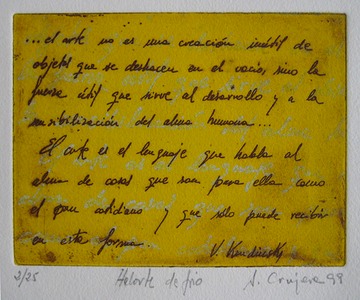 ...el arte no es una creación inútil de
objetos que se deshacen en el vacío, sino la
fuerza útil que sirve al desarrollo y a la
sensibilización del alma humana...
El arte es el lenguaje que habla al
alma de cosas que son para ella como
el pan cotidiano y que sólo puede recibir
en esta forma.
V. Kandinsky
2/25 de frío A. Crujera 99